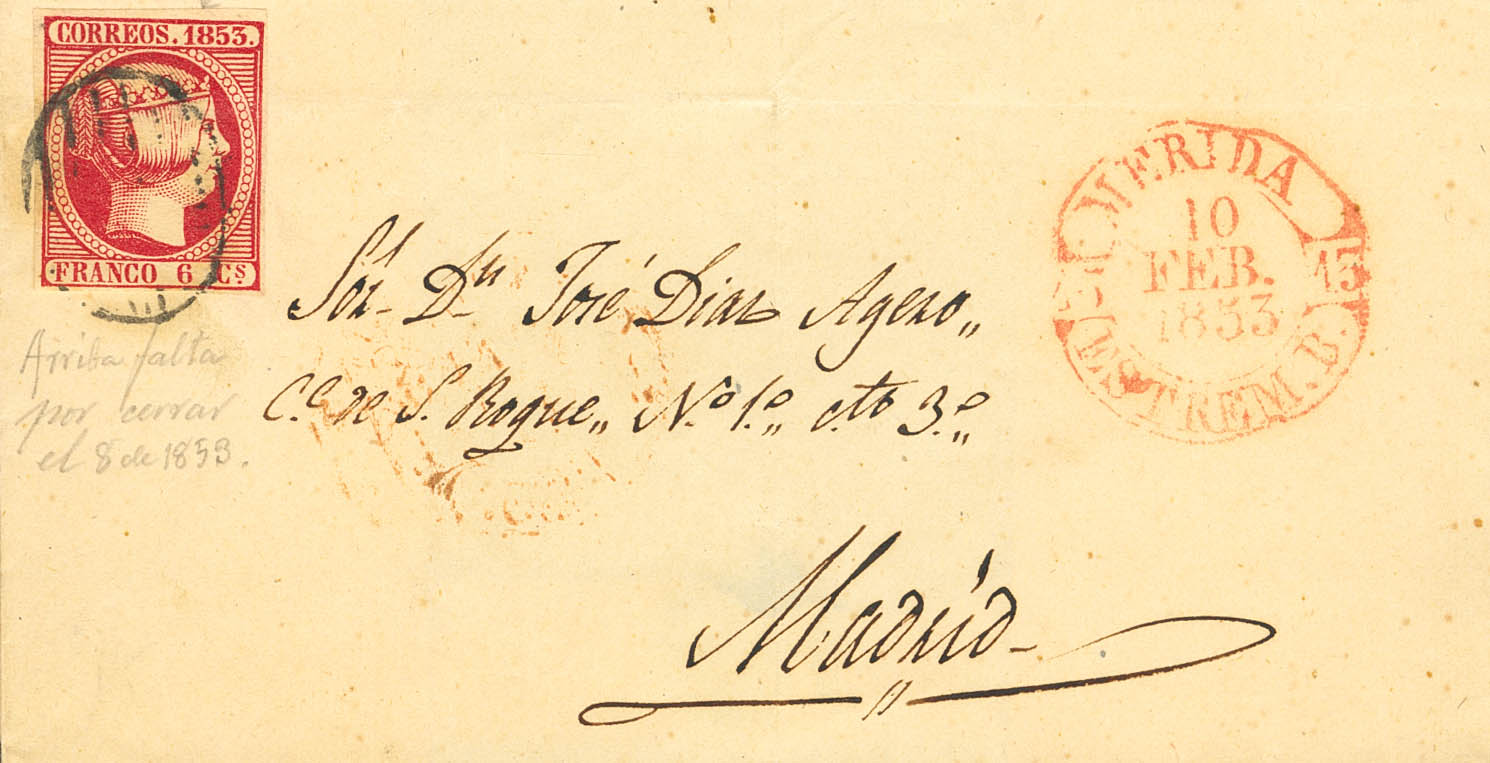 CORREOS. 1853.
FRANCO 6 Cs
Arriba falta
por cerrar
el 8 de 1853.
Sor. Dn. José Diaz Agero„
C.e de S. Roque„ No. 1.o„ cto 3.o„
Madrid
MERIDA
10
FEB.
1853
15
ESTREM. B.